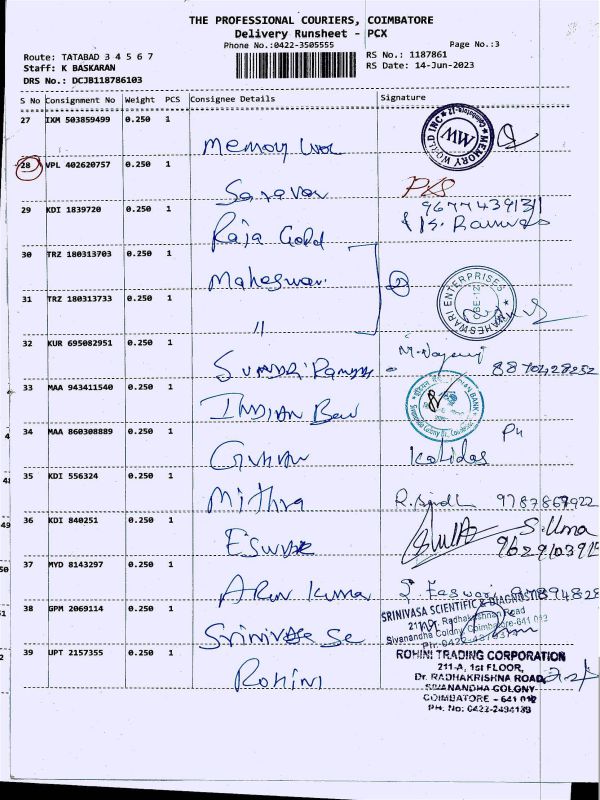 THE PROFESSIONAL COURIERS, COIMBATORE
Delivery Runsheet - PCX
Phone No.:0422-3505555
Page No.:3
Route: TATABAD 3 4 5 6 7
RS No.: 1187861
Staff: K BASKARAN
RS Date: 14-Jun-2023
DRS No.: DCJB118786103
S No Consignment No Weight PCS Consignee Details Signature
27 IXM 503859499 0.250 1
Memory
MEMORY WORLD INC Coimbatore-12 MW
28 VPL 402620757 0.250 1
Saravan
29 KDI 1839720 0.250 1
9677443913
Raja Gold
30 TRZ 180313703 0.250 1
Maheswari 2
MAHESWARI ENTERPRISES
31 TRZ 180313733 0.250 1
"
32 KUR 695082951 0.250 1
8870428252
33 MAA 943411540 0.250 1
INDIAN
INDIAN BANK
Sivananda Colony Br., Coimbatore
34 MAA 860308889 0.250 1
Kalidas
35 KDI 556324 0.250 1
Mithra
36 KDI 840251 0.250 1
S. Uma
Eswar
37 MYD 8143297 0.250 1
Arun Kumar
38 GPM 2069114 0.250 1
SRINIVASA SCIENTIFIC & DIAGNOSTIC
211-A, Radhakrishnan Road
Sivanandha Colony, Coimbatore-641 012
Srinivasa Sc
39 UPT 2157355 0.250 1
ROHINI TRADING CORPORATION
211-A, 1st FLOOR,
Dr. RADHAKRISHNA ROAD,
SIVANANDHA COLONY
COIMBATORE - 641 012
PH: No: 0422-2494189
Rohini